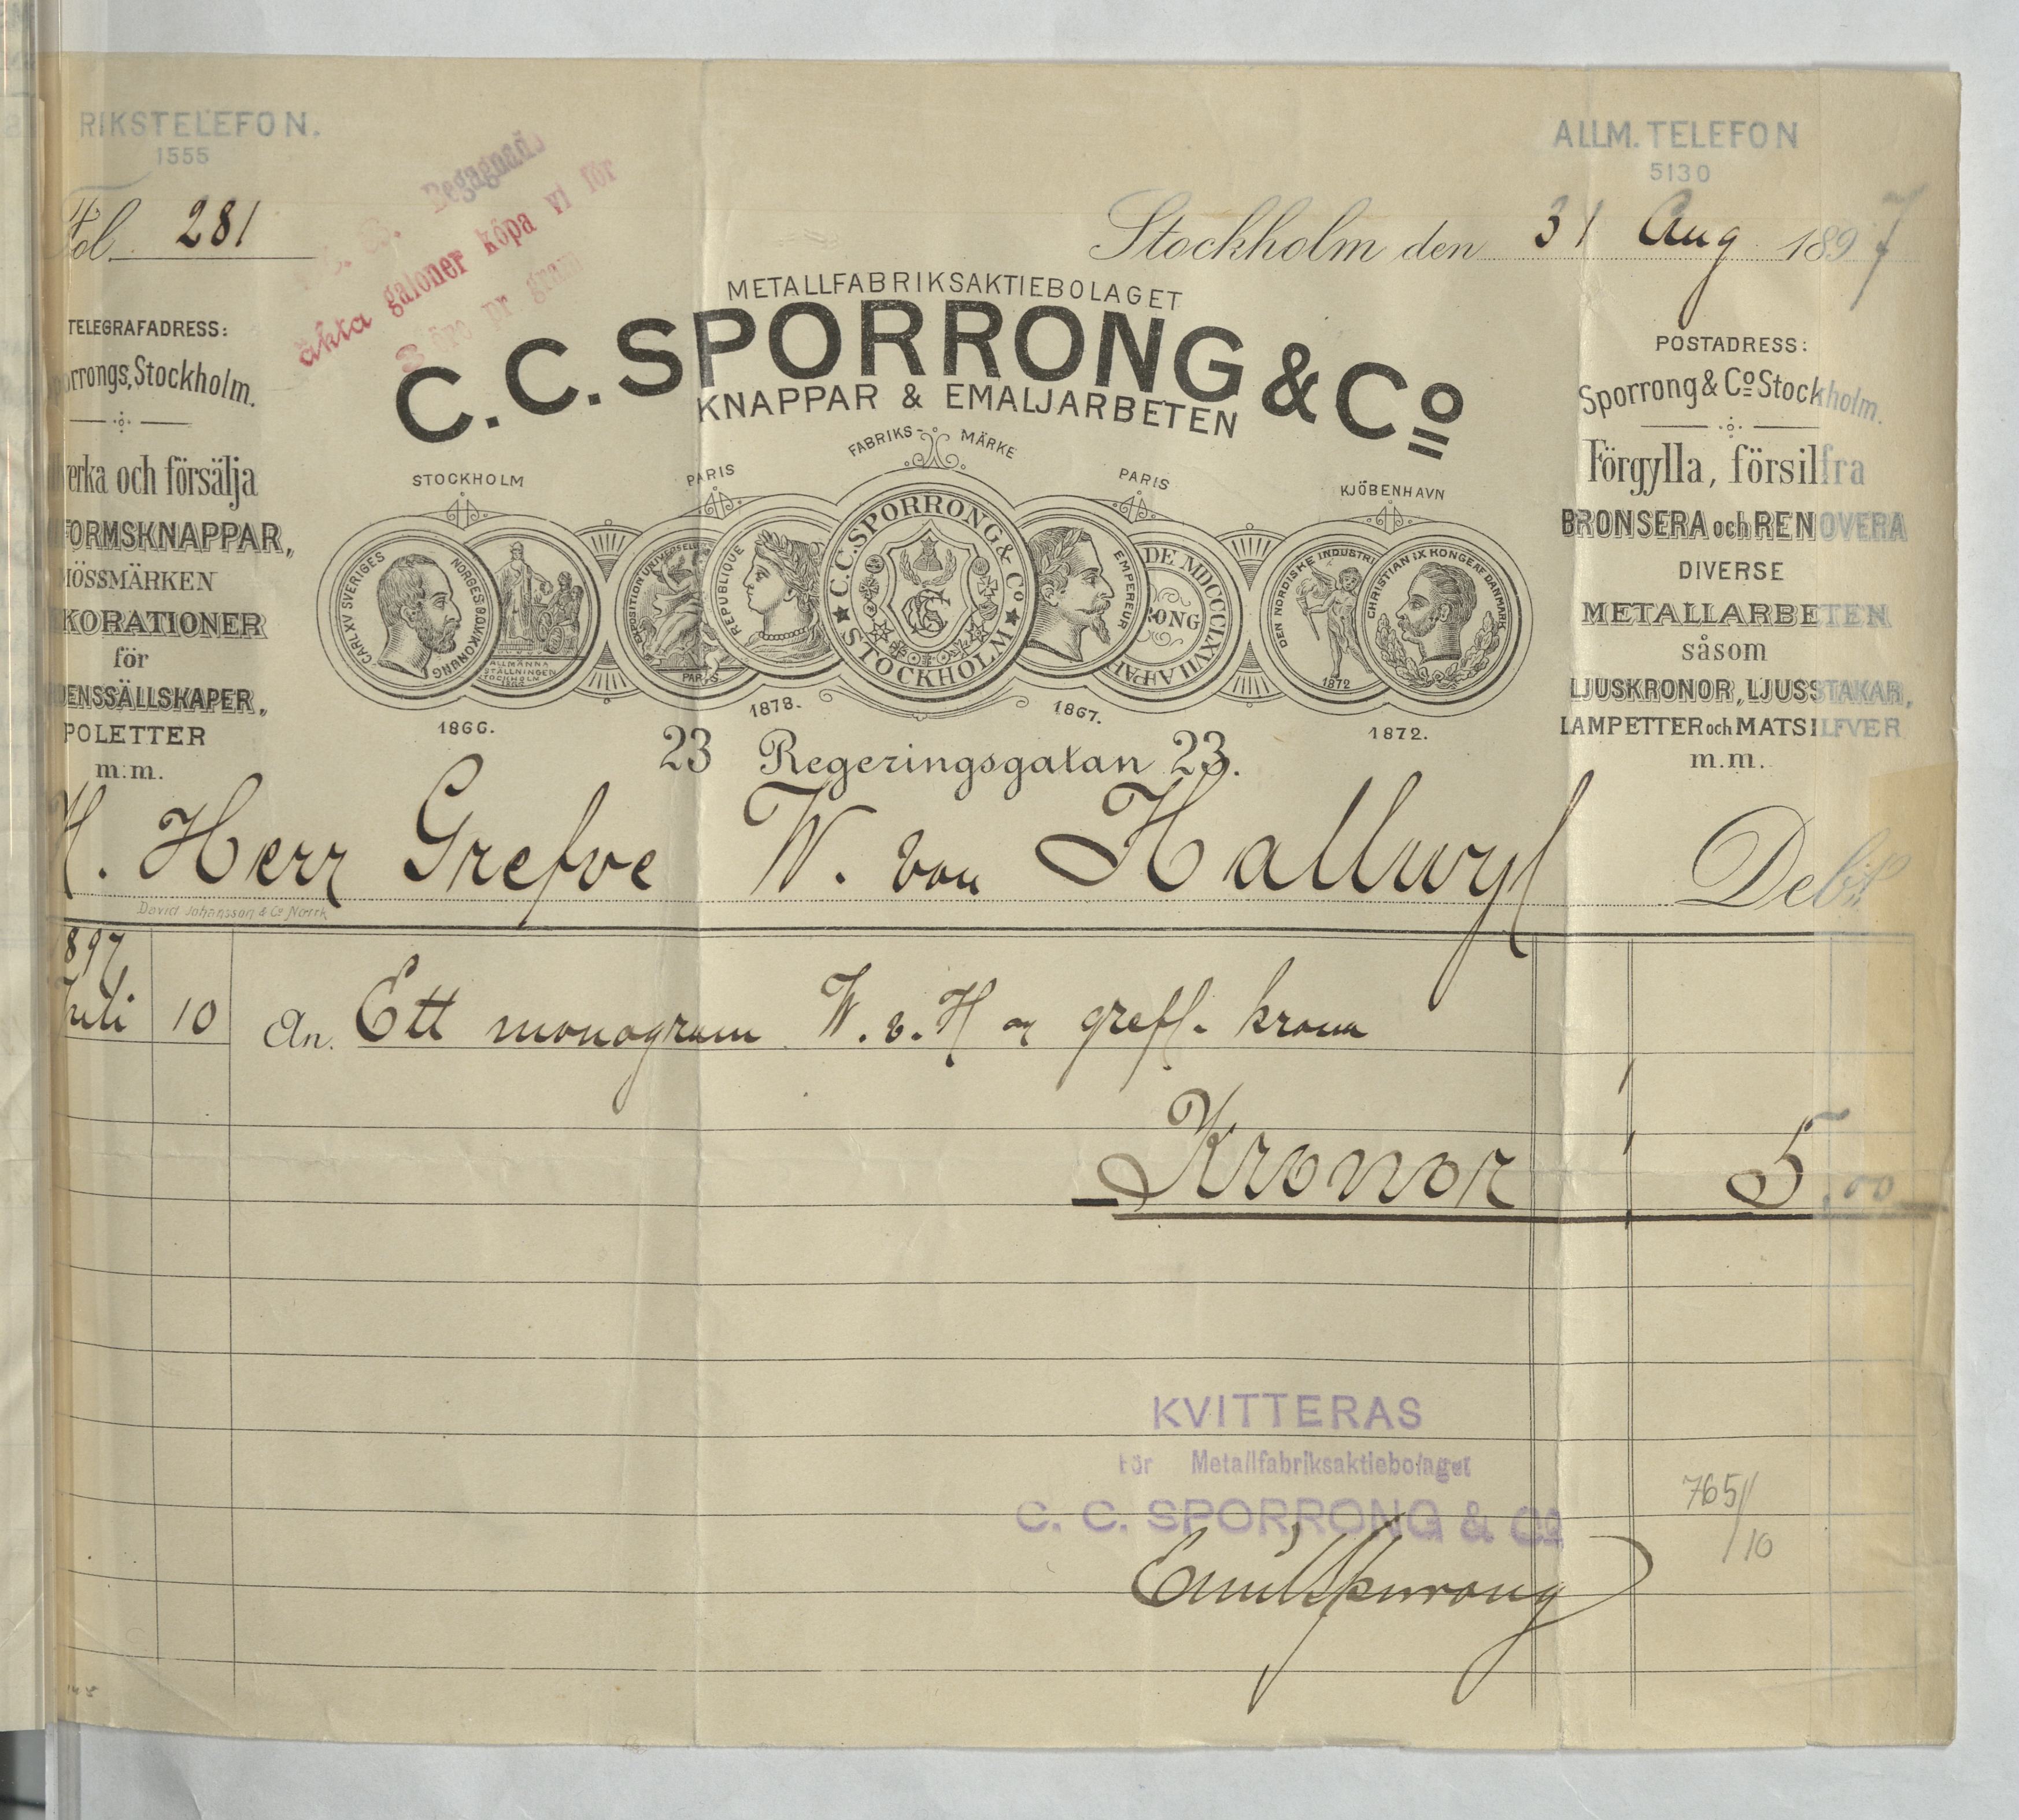 RIKSTELEFON.
1555
ALLM. TELEFON
5130
Fol. 281
Begagnade
äkta galoner köpa vi för
8 öre pr gram
Stockholm den 31 Aug 1897
METALLFABRIKSAKTIEBOLAGET
C. C. SPORRONG & Co
KNAPPAR & EMALJARBETEN
TELEGRAFADRESS:
orrongs, Stockholm.
erka och försälja
FORMSKNAPPAR,
MÖSSMÄRKEN
KORATIONER
för
DENSSÄLLSKAPER,
POLETTER
m.m.
POSTADRESS:
Sporrong & Co Stockholm.
Förgylla, försilfra
BRONSERA och RENOVERA
DIVERSE
METALLARBETEN
såsom
LJUSKRONOR, LJUSSTAKAR,
LAMPETTER och MATSILFVER
m.m.
FABRIKS- MÄRKE
STOCKHOLM
PARIS
PARIS
KJÖBENHAVN
CARL XV SVERIGES NORGES GÖ. V. KONUNG
ALLMÄNNA
STÄLLNINGEN
STOCKHOLM
1866
EXPOSITION UNIVERSELLE
PARIS
REPUBLIQUE
C. C. SPORRONG & Co
STOCKHOLM
EMPEREUR
DE MDCCCLXVII A PAR
RONG
DEN NORDISKE INDUSTRI
1872
CHRISTIAN IX KONGE AF DANMARK
1866.
1878.
1867.
1872.
23 Regeringsgatan 23.
H. Herr Grefve W. von Hallwyl Debit
David Johansson & Co Norrk
1897
Juli 10 An. Ett monogram W. v. H og grefl. krona
Kronor 5.00
KVITTERAS
För Metallfabriksaktiebolaget
C. C. SPORRONG & Co
Emil Sporrong
765/10